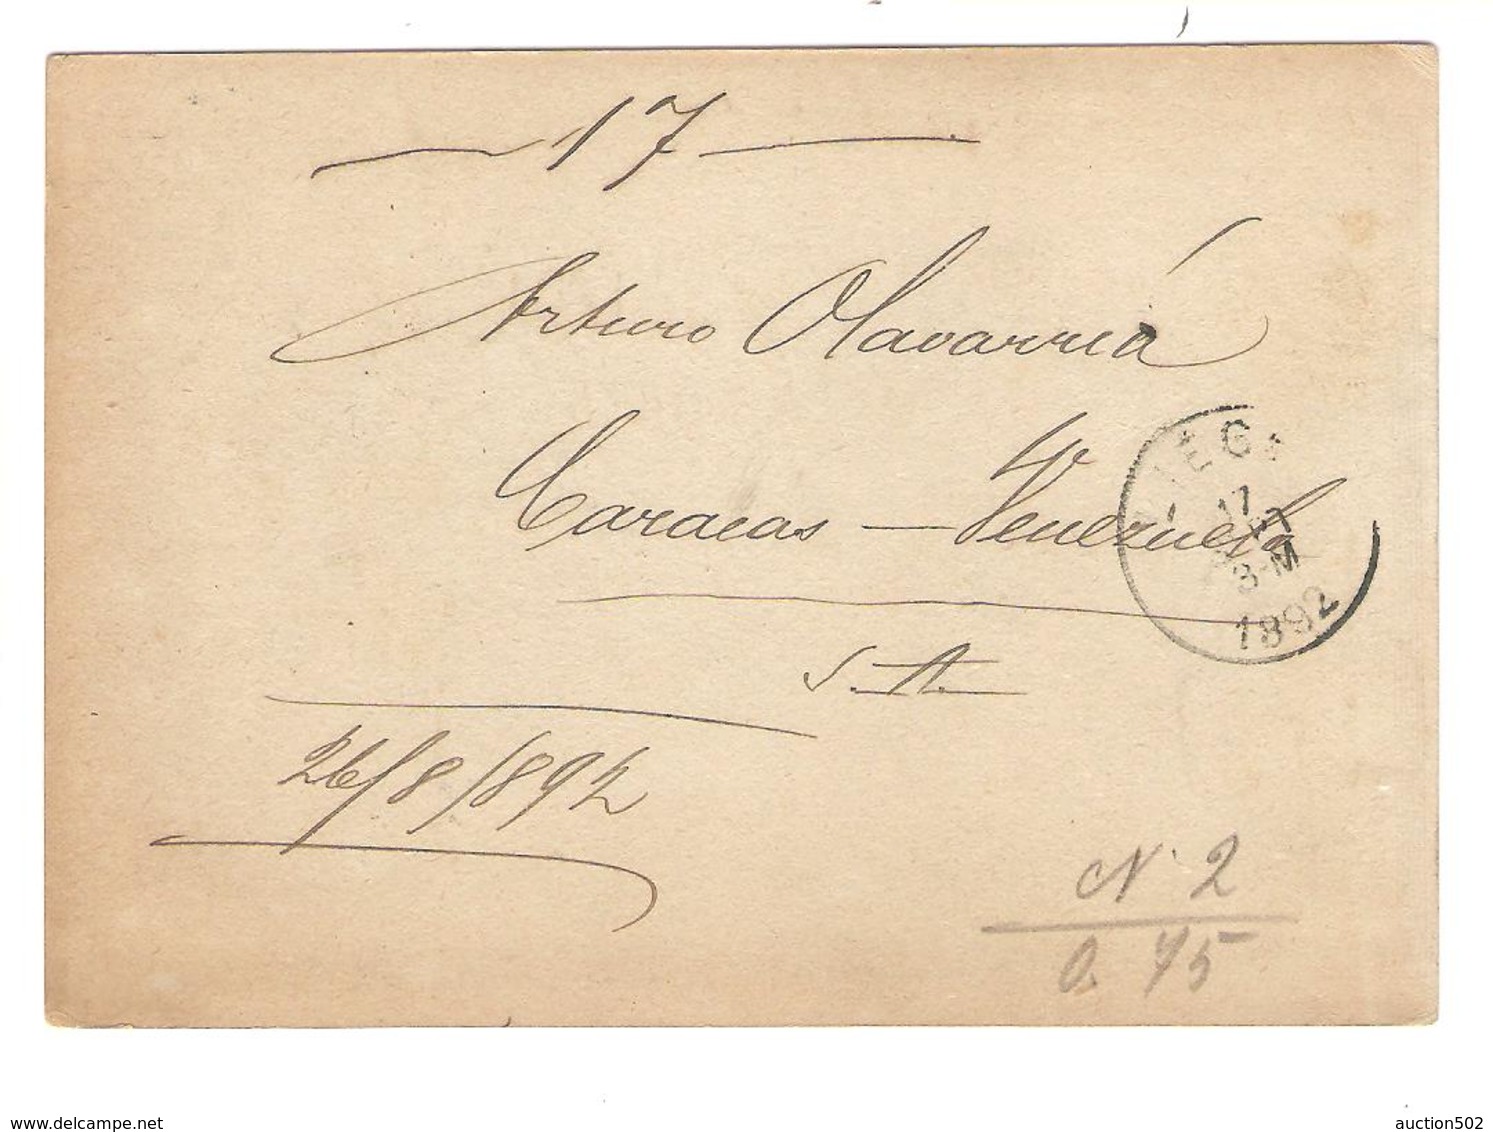 — 17 —
Arturo Olavarría
Caracas — Venezuela
S. A.
26/8/892
LIÈG
17
8-M
1892
N 2
0. 75
www.delcampe.net
auction502